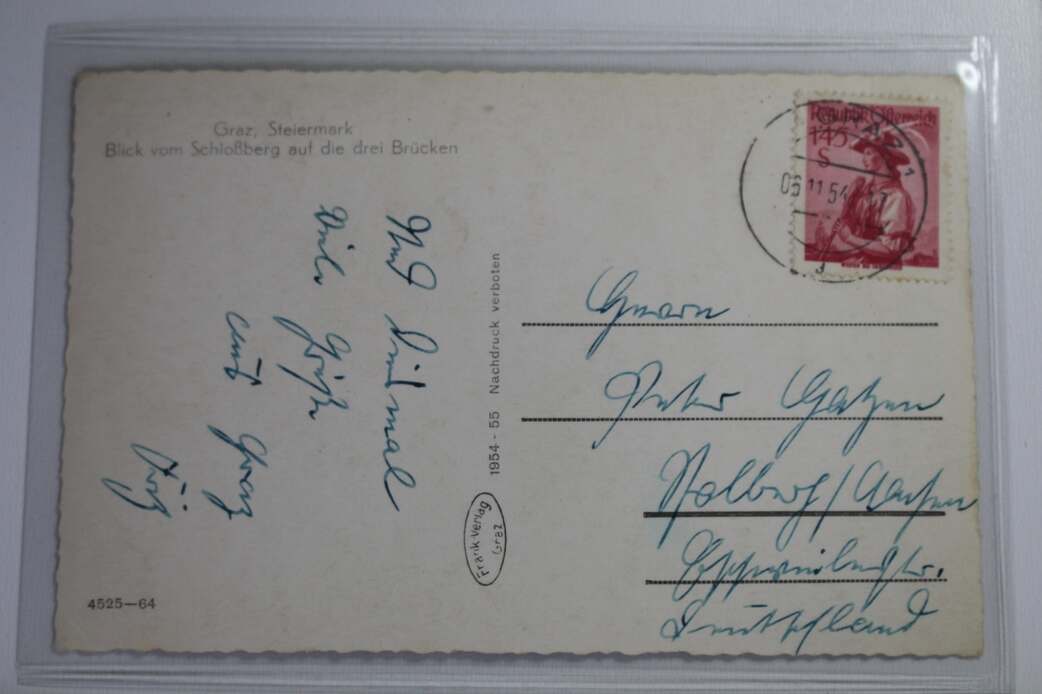 Graz, Steiermark
Blick vom Schloßberg auf die drei Brücken
Und diesmal
Viele
Grüße
aus Graz
1954 - 55 Nachdruck verboten
Frank Verlag
Graz
4525—64
Republik Österreich
1·45
S
GRAZ 1
06.11.54
Herrn
Peter
Stolberg / Aachen
Eschweilerstr.
Deutschland